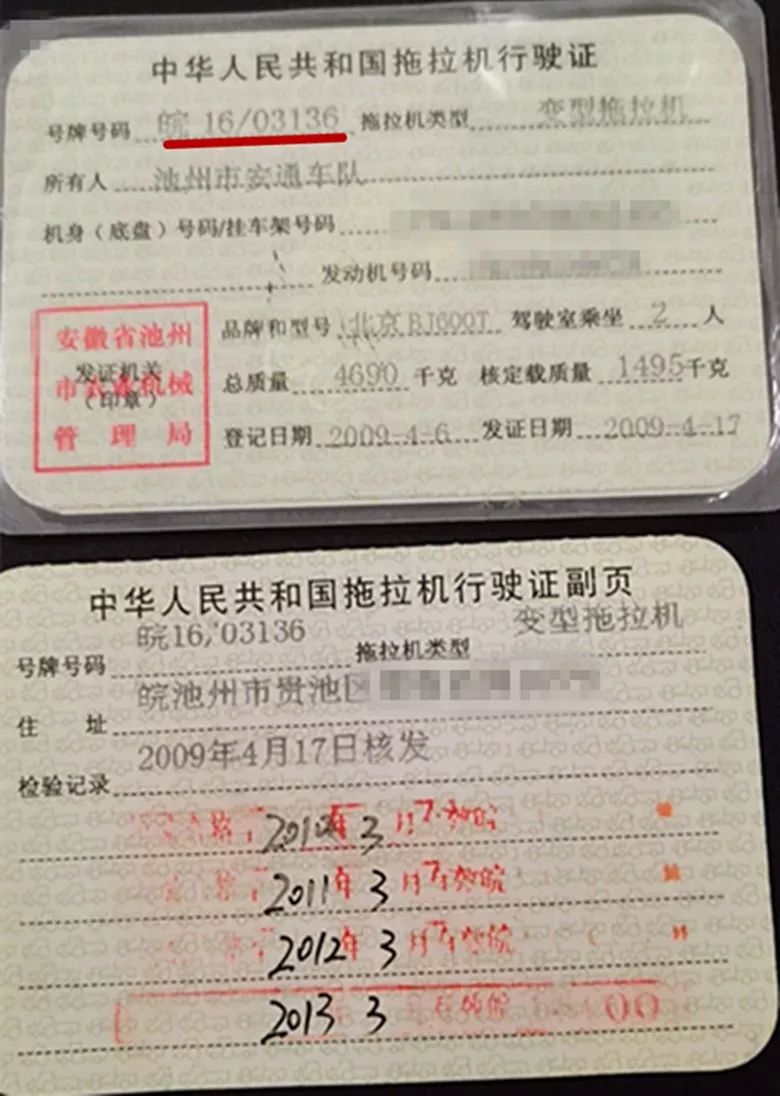 中华人民共和国拖拉机行驶证
号牌号码 皖 16/03136 拖拉机类型 变型拖拉机
所有人 池州市安通车队
机身（底盘）号码/挂车架号码
发动机号码
品牌和型号 北京BJ600T 驾驶室乘坐 2 人
总质量 4690 千克 核定载质量 1495千克
登记日期 2009-4-6 发证日期 2009-4-17
安徽省池州
发证机关
市农业机械
（印章）
管理局
中华人民共和国拖拉机行驶证副页
号牌号码 皖16/03136 拖拉机类型 变型拖拉机
住址 皖池州市贵池区
检验记录 2009年4月17日核发
2010年3月
2011年3月
2012年3月
2013 3